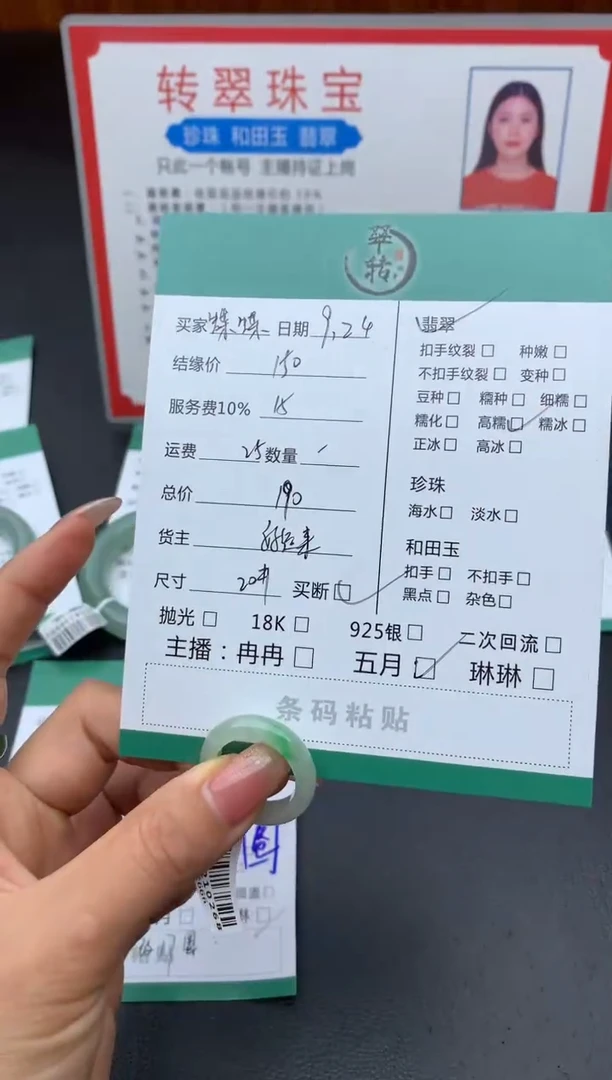 转翠珠宝
珍珠 和田玉 翡翠
只此一个帐号 主播持证上岗
翠转
买家 日期 9.24
结缘价 150
服务费10% 15
运费 25 数量
总价 190
货主
尺寸 20 买断
翡翠
扣手纹裂 种嫩
不扣手纹裂 变种
豆种 糯种 细糯
糯化 高糯 糯冰
正冰 高冰
珍珠
海水 淡水
和田玉
扣手 不扣手
黑点 杂色
抛光 18K 925银 二次回流
主播：冉冉 五月 琳琳
条码粘贴